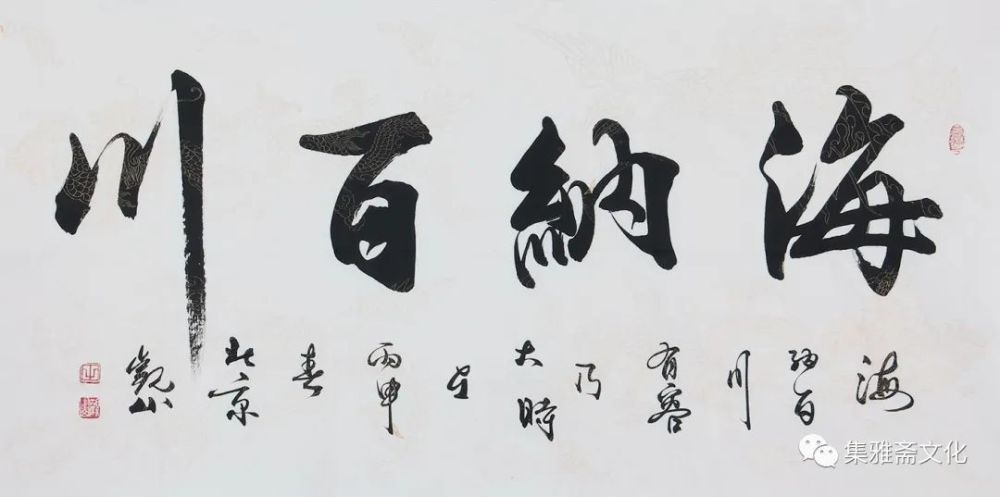 海納百川
海納百川有容乃大時在丙申春北京觀山
集雅斋文化